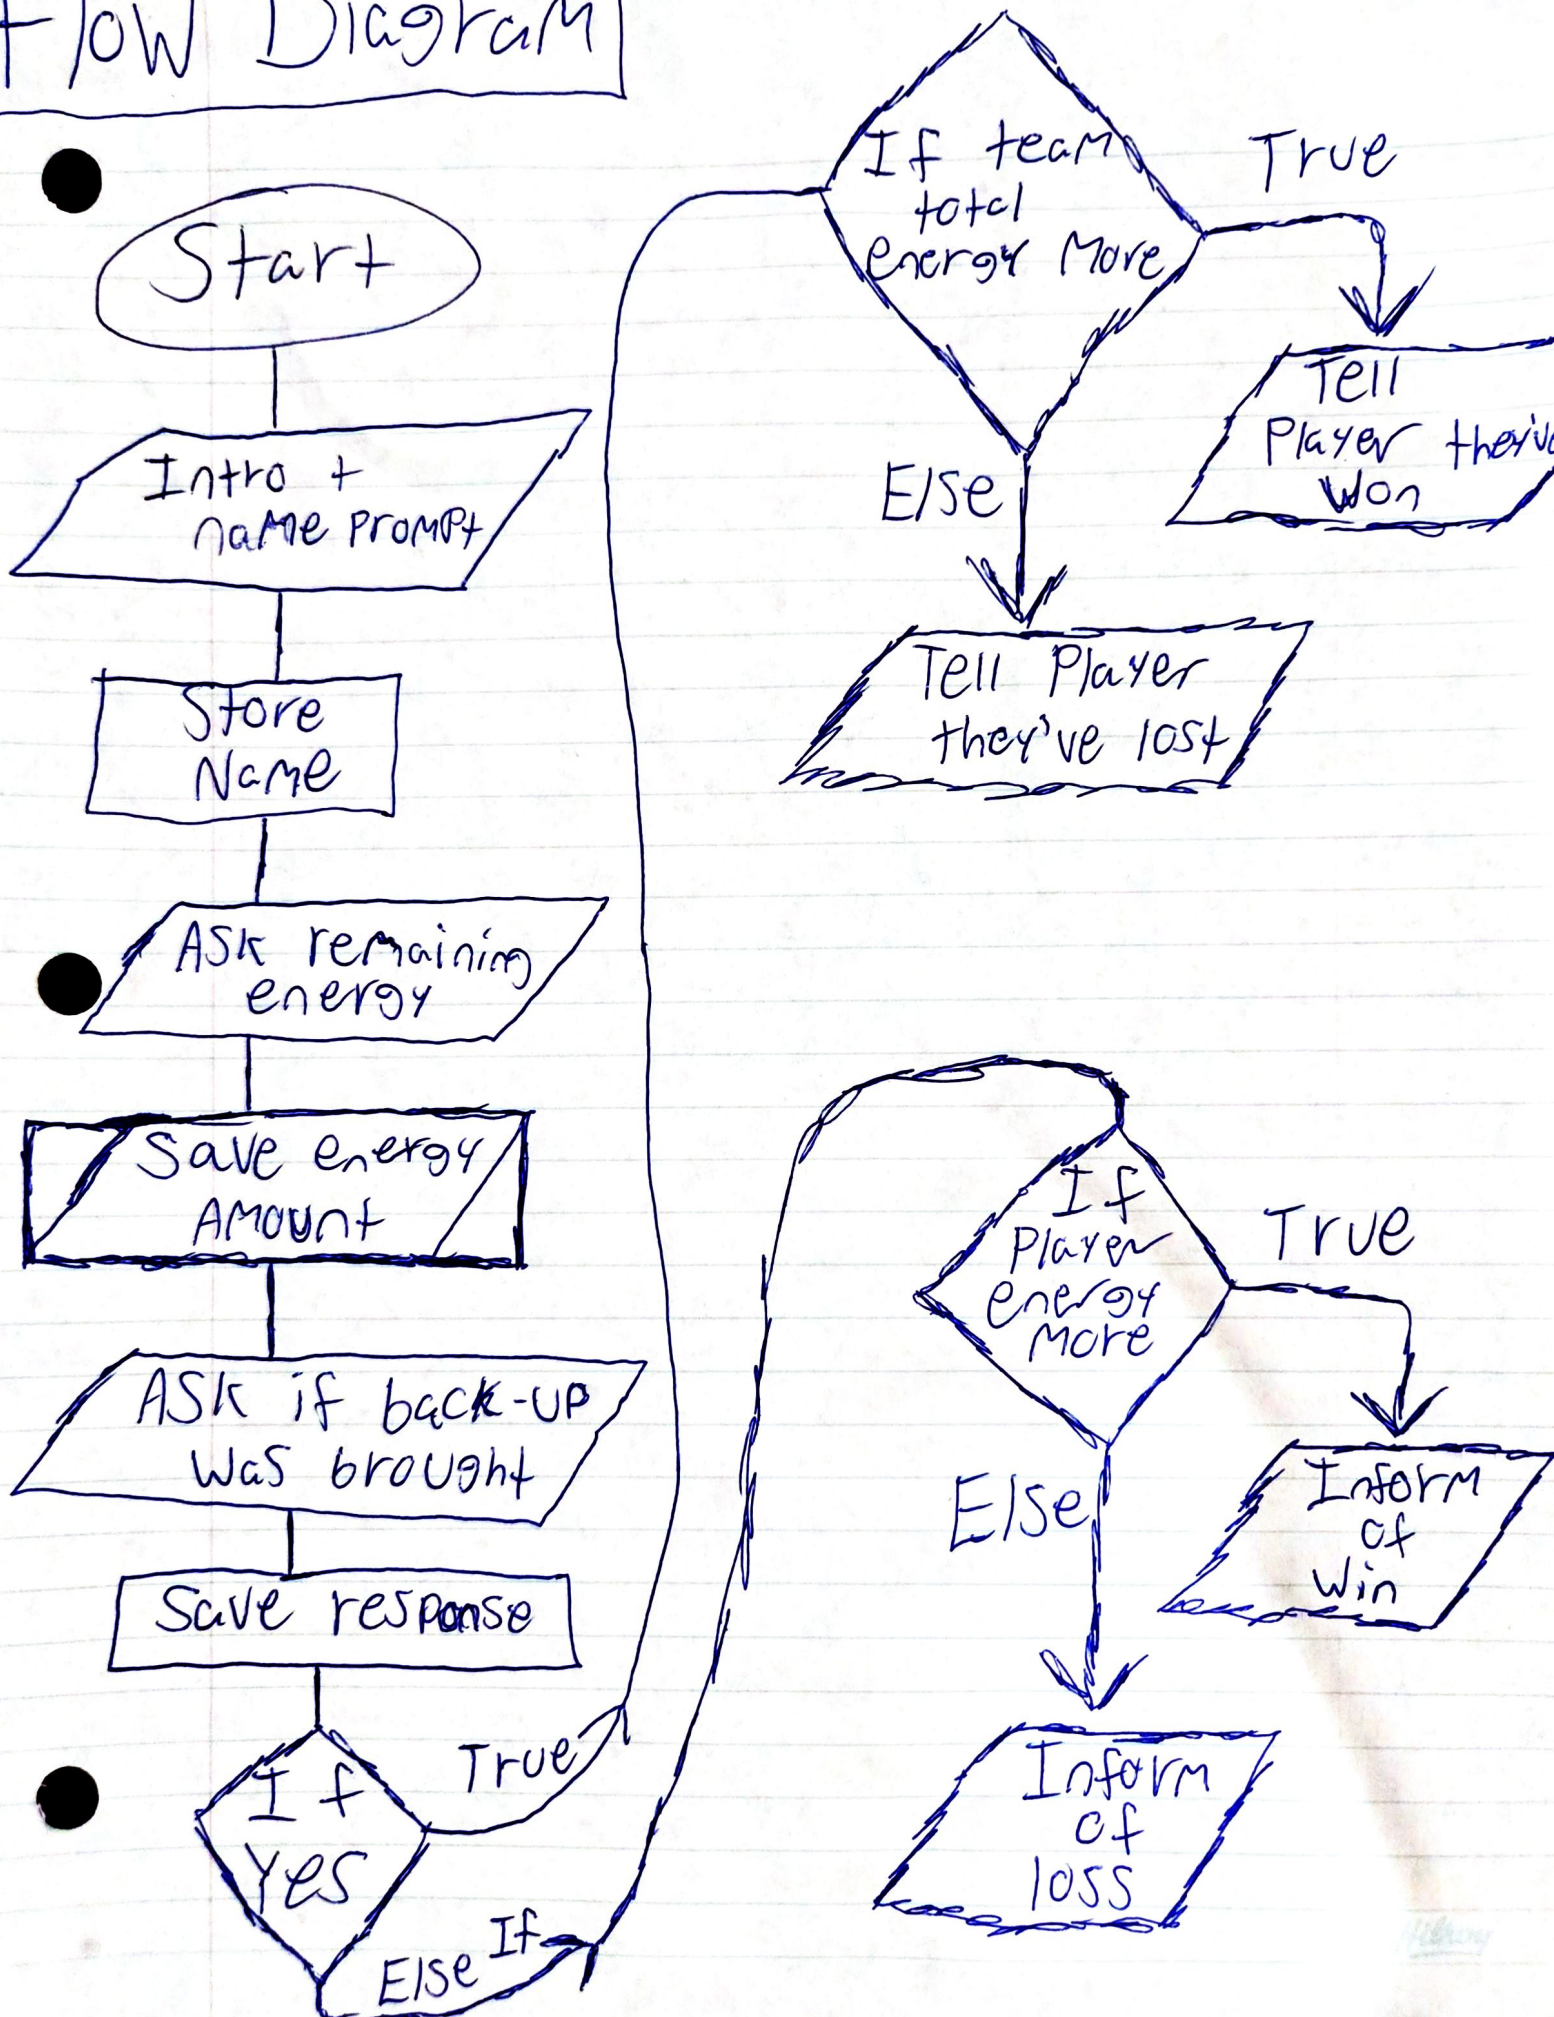 Flow Diagram
Start
Intro +
name Prompt
Store
Name
ASK remaining
energy
Save energy
Amount
ASK if back-up
was brought
Save response
If
Yes
True
Else If
If team
total
energy More
True
Tell
Player they've
Won
Else
Tell Player
they've lost
If
Player
energy
More
True
Inform
of
Win
Else
Inform
of
loss
Hilroy